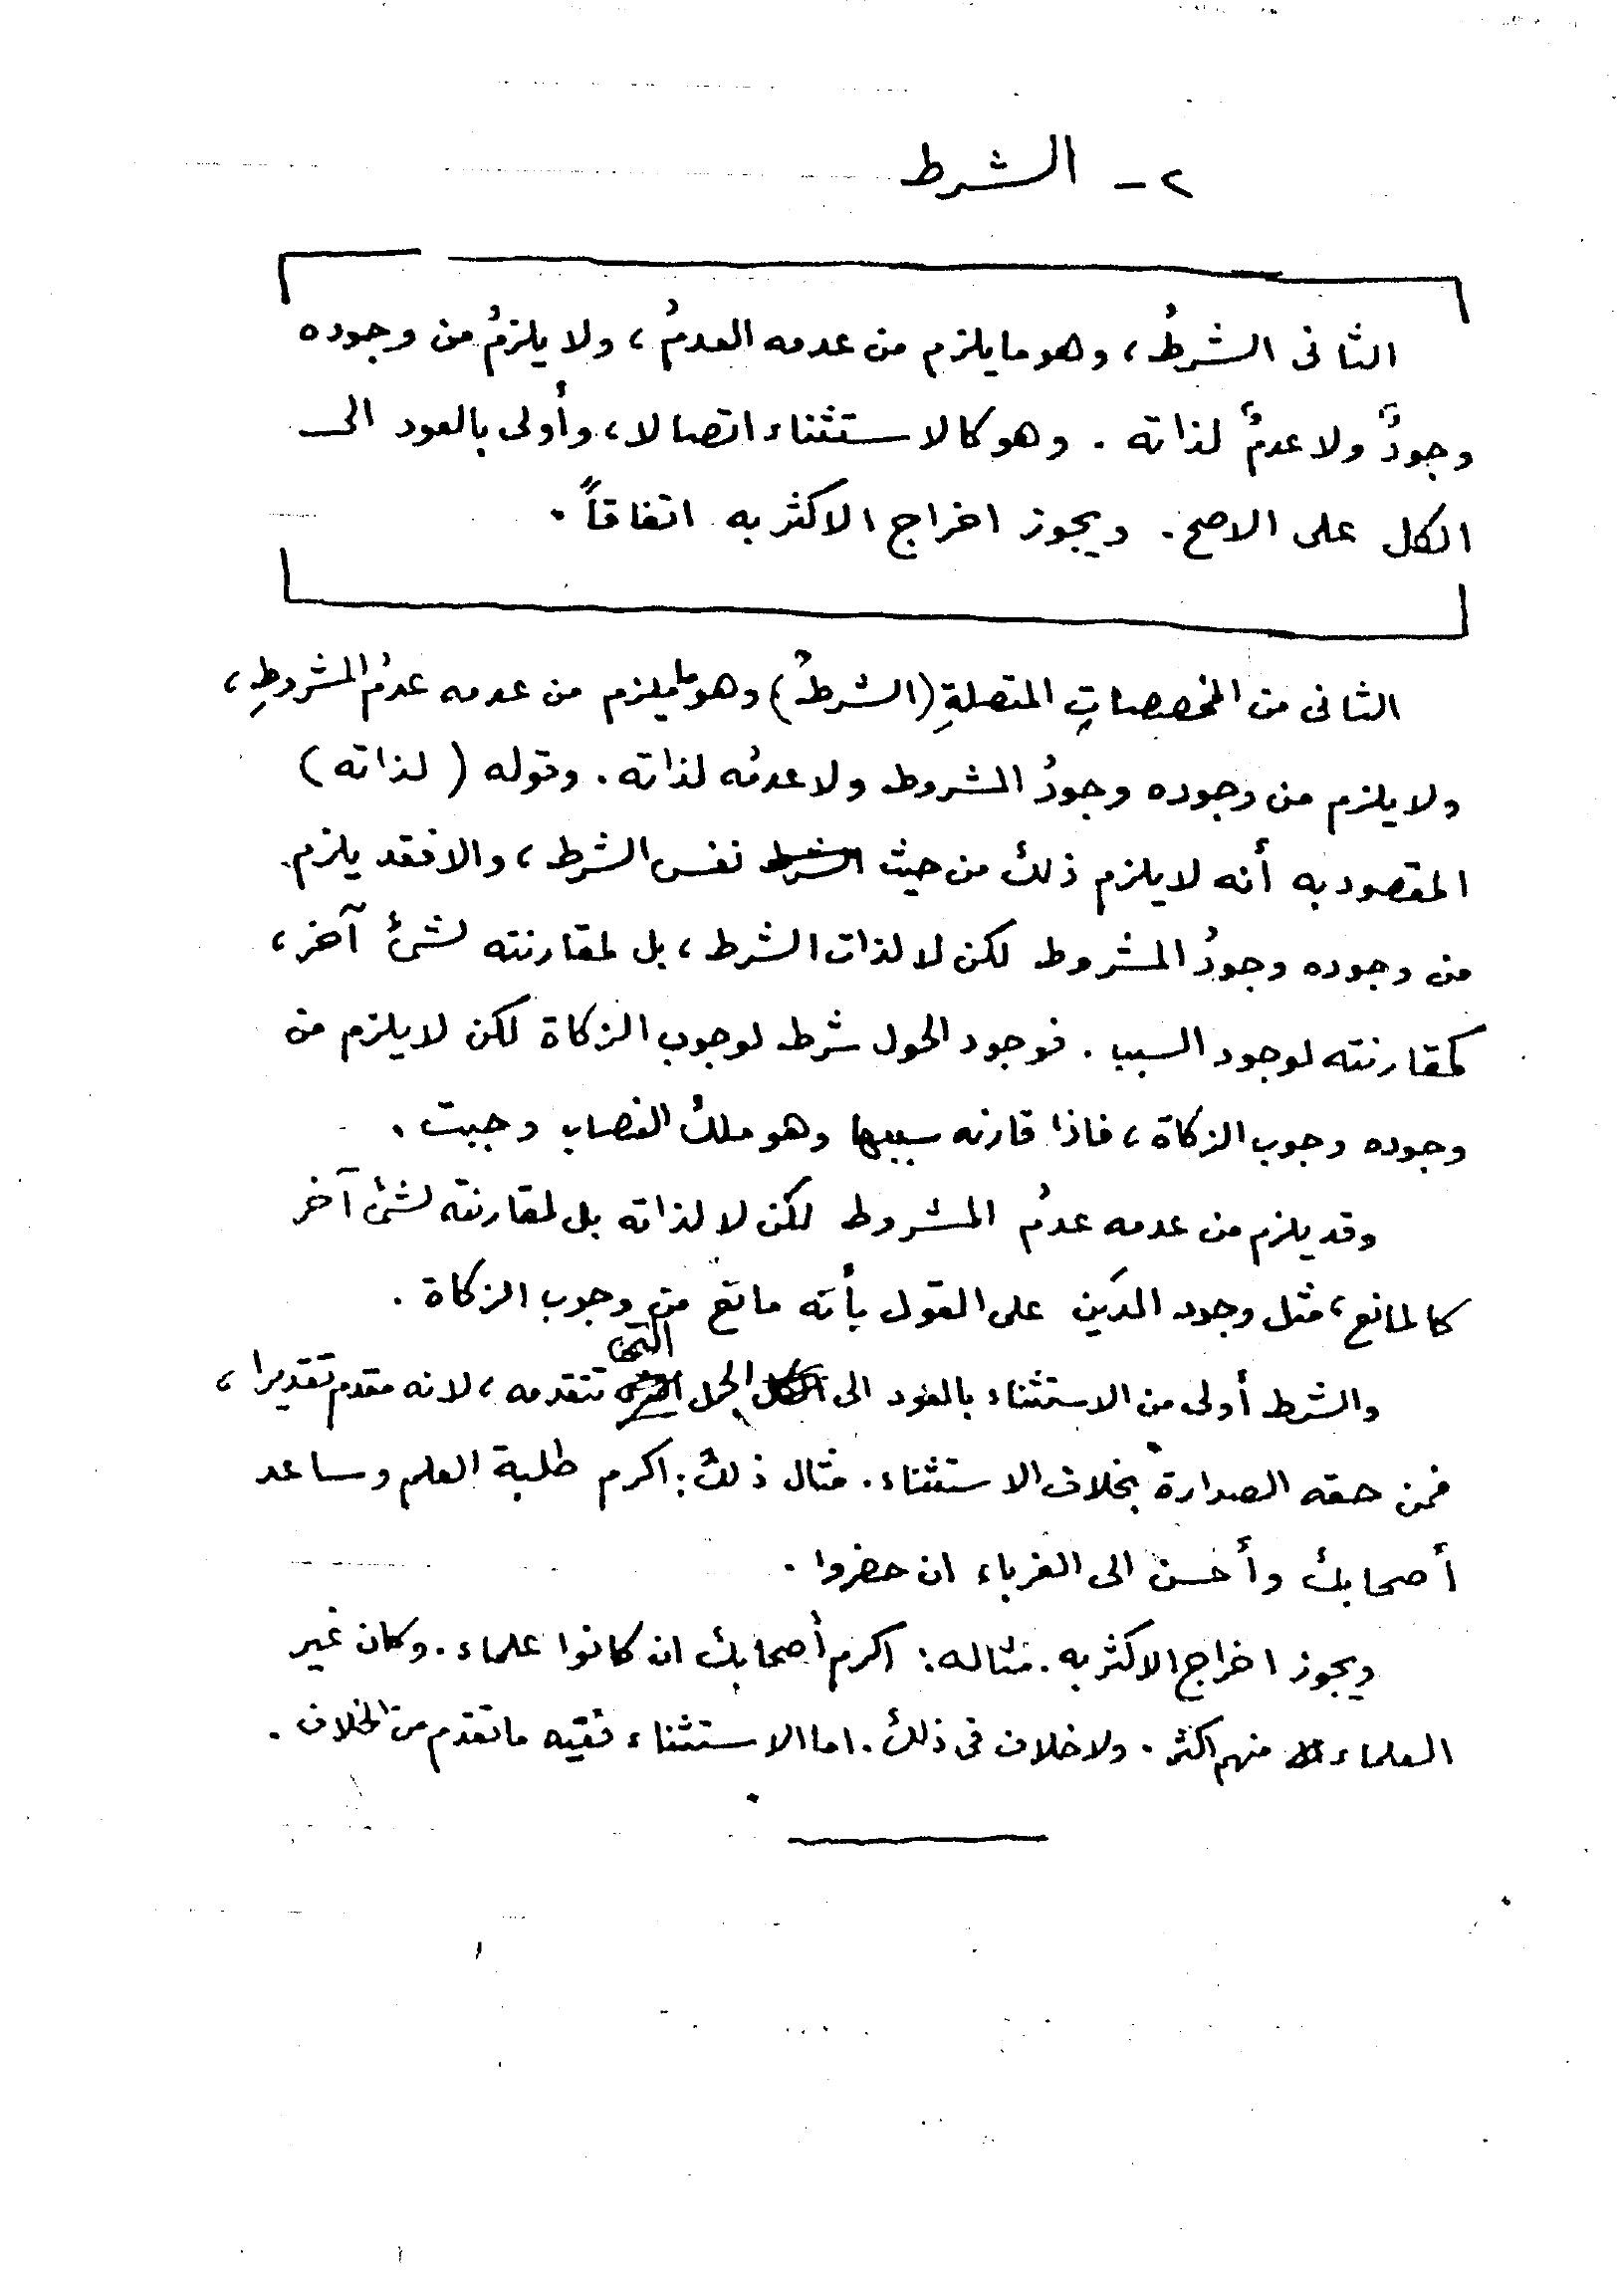 ٢ - الشرط
الثانى الشرطُ، وهو ما يلزم من عدمه العدمُ، ولا يلزمُ من وجوده
وجودٌ ولا عدمٌ لذاته . وهو كالاستثناء اتصالا، وأولى بالعود الى
الكل على الاصح. ويجوز اخراج الاكثر به اتفاقاً .
الثانى من المخصصاتِ المتصلةِ (الشرطُ) وهو ما يلزم من عدمه عدمُ المشروطِ،
ولا يلزم من وجوده وجودُ المشروط ولا عدمُه لذاته. وقوله (لذاته)
المقصود به أنه لا يلزم ذلك من حيث نفس الشرط، والا فقد يلزم
من وجوده وجودُ المشروط لكن لا لذات الشرط، بل لمقارنته لشئ آخر،
كمقارنته لوجود السبب . فوجود الحول شرط لوجوب الزكاة لكن لا يلزم من
وجوده وجوب الزكاة، فاذا قارنه سببها وهو ملك النصاب وجبت .
وقد يلزم من عدمه عدمُ المشروط لكن لا لذاته بل لمقارنته لشئ آخر
كالمانع، مثل وجود الدَين على القول بأنه مانع من وجوب الزكاة .
والشرط أولى من الاستثناء بالعود الى الجمل التى تتقدمه، لانه مقدم تقديرا،
فمن حقه الصدارة بخلاف الاستثناء. مثال ذلك: اكرم طلبة العلم وساعد
أصحابك وأحسن الى الغرباء ان حضروا .
ويجوز اخراج الاكثر به. مثاله: اكرم أصحابك ان كانوا علماء. وكان غير
العلماء منهم اكثر . ولا خلاف فى ذلك. اما الاستثناء ففيه ما تقدم من الخلاف .